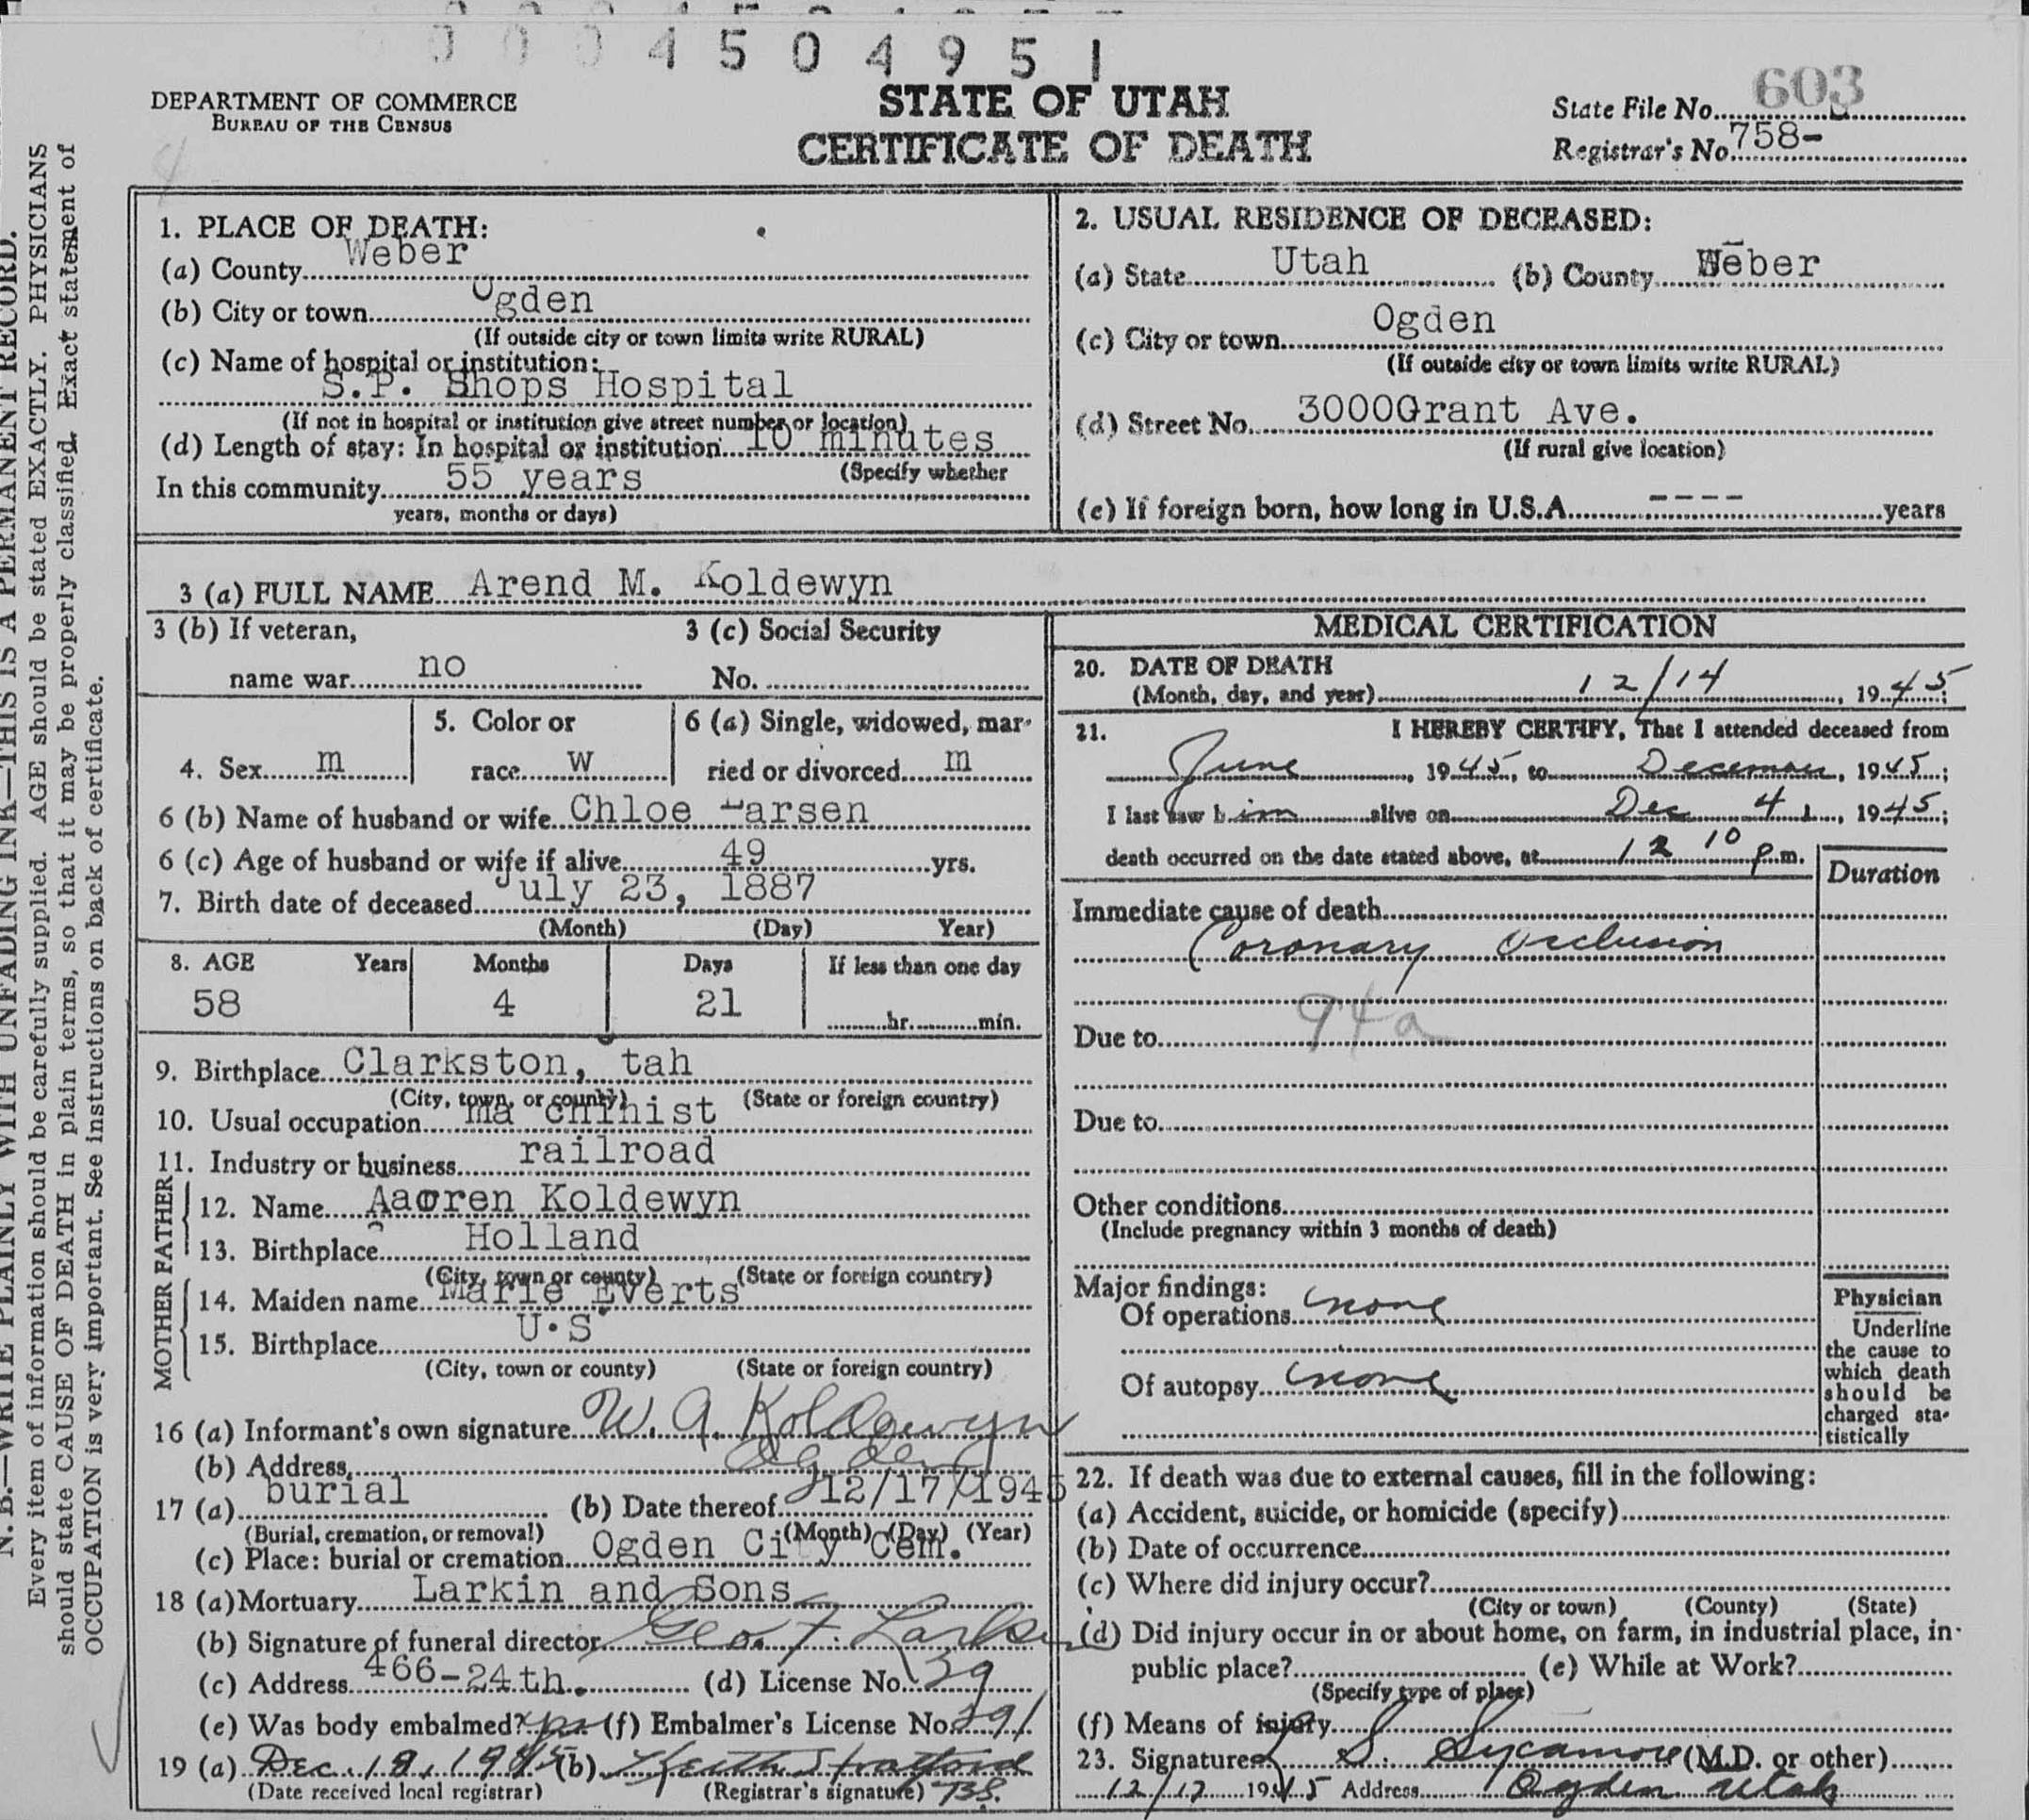 0 0 0 4 5 0 4 9 5 1
DEPARTMENT OF COMMERCE
BUREAU OF THE CENSUS
STATE OF UTAH
CERTIFICATE OF DEATH
State File No. 603
Registrar's No. 758-
N. B.—WRITE PLAINLY WITH UNFADING INK—THIS IS A PERMANENT RECORD.
Every item of information should be carefully supplied. AGE should be stated EXACTLY. PHYSICIANS
should state CAUSE OF DEATH in plain terms, so that it may be properly classified. Exact statement of
OCCUPATION is very important. See instructions on back of certificate.
1. PLACE OF DEATH:
(a) County Weber
(b) City or town Ogden
(If outside city or town limits write RURAL)
(c) Name of hospital or institution:
S.P. Shops Hospital
(If not in hospital or institution give street number or location)
(d) Length of stay: In hospital or institution 10 minutes
(Specify whether
In this community 55 years
years, months or days)
2. USUAL RESIDENCE OF DECEASED:
(a) State Utah (b) County Weber
(c) City or town Ogden
(If outside city or town limits write RURAL)
(d) Street No. 3000Grant Ave.
(If rural give location)
(e) If foreign born, how long in U.S.A. ---- years
3 (a) FULL NAME Arend M. Koldewyn
3 (b) If veteran,
name war no
3 (c) Social Security
No.
4. Sex m
5. Color or
race w
6 (a) Single, widowed, mar-
ried or divorced m
6 (b) Name of husband or wife Chloe Larsen
6 (c) Age of husband or wife if alive 49 yrs.
7. Birth date of deceased July 23, 1887
(Month) (Day) Year)
8. AGE Years Months Days If less than one day
58 4 21 hr. min.
9. Birthplace Clarkston, tah
(City, town, or county) (State or foreign country)
10. Usual occupation ma chinist
11. Industry or business railroad
FATHER
12. Name Aaoren Koldewyn
13. Birthplace Holland
(City, town or county) (State or foreign country)
MOTHER
14. Maiden name Marie Everts
15. Birthplace U.S
(City, town or county) (State or foreign country)
16 (a) Informant's own signature W. A. Koldewyn
(b) Address Ogden
17 (a) burial (b) Date thereof 12/17/1945
(Burial, cremation, or removal) (Month) (Day) (Year)
(c) Place: burial or cremation Ogden City Cem.
18 (a) Mortuary Larkin and Sons
(b) Signature of funeral director Geo. F. Larkin
(c) Address 466-24th. (d) License No. 39
(e) Was body embalmed? yes (f) Embalmer's License No. 291
19 (a) Dec. 19, 1945 (b) Keith Stratford
(Date received local registrar) (Registrar's signature)
MEDICAL CERTIFICATION
20. DATE OF DEATH
(Month, day, and year) 12/14, 1945;
21. I HEREBY CERTIFY, That I attended deceased from
June, 1945, to December, 1945;
I last saw him alive on Dec 4, 1945;
death occurred on the date stated above, at 12 10 p.m.
Duration
Immediate cause of death
Coronary Occlusion
94a
Due to
Due to
Other conditions
(Include pregnancy within 3 months of death)
Major findings:
Of operations none
Of autopsy none
Physician
Underline
the cause to
which death
should be
charged sta-
tistically
22. If death was due to external causes, fill in the following:
(a) Accident, suicide, or homicide (specify)
(b) Date of occurrence
(c) Where did injury occur?
(City or town) (County) (State)
(d) Did injury occur in or about home, on farm, in industrial place, in
public place? (e) While at Work?
(Specify type of place)
(f) Means of injury
23. Signature L. S. Sycamore (M.D. or other)
12/17 1945 Address Ogden Utah